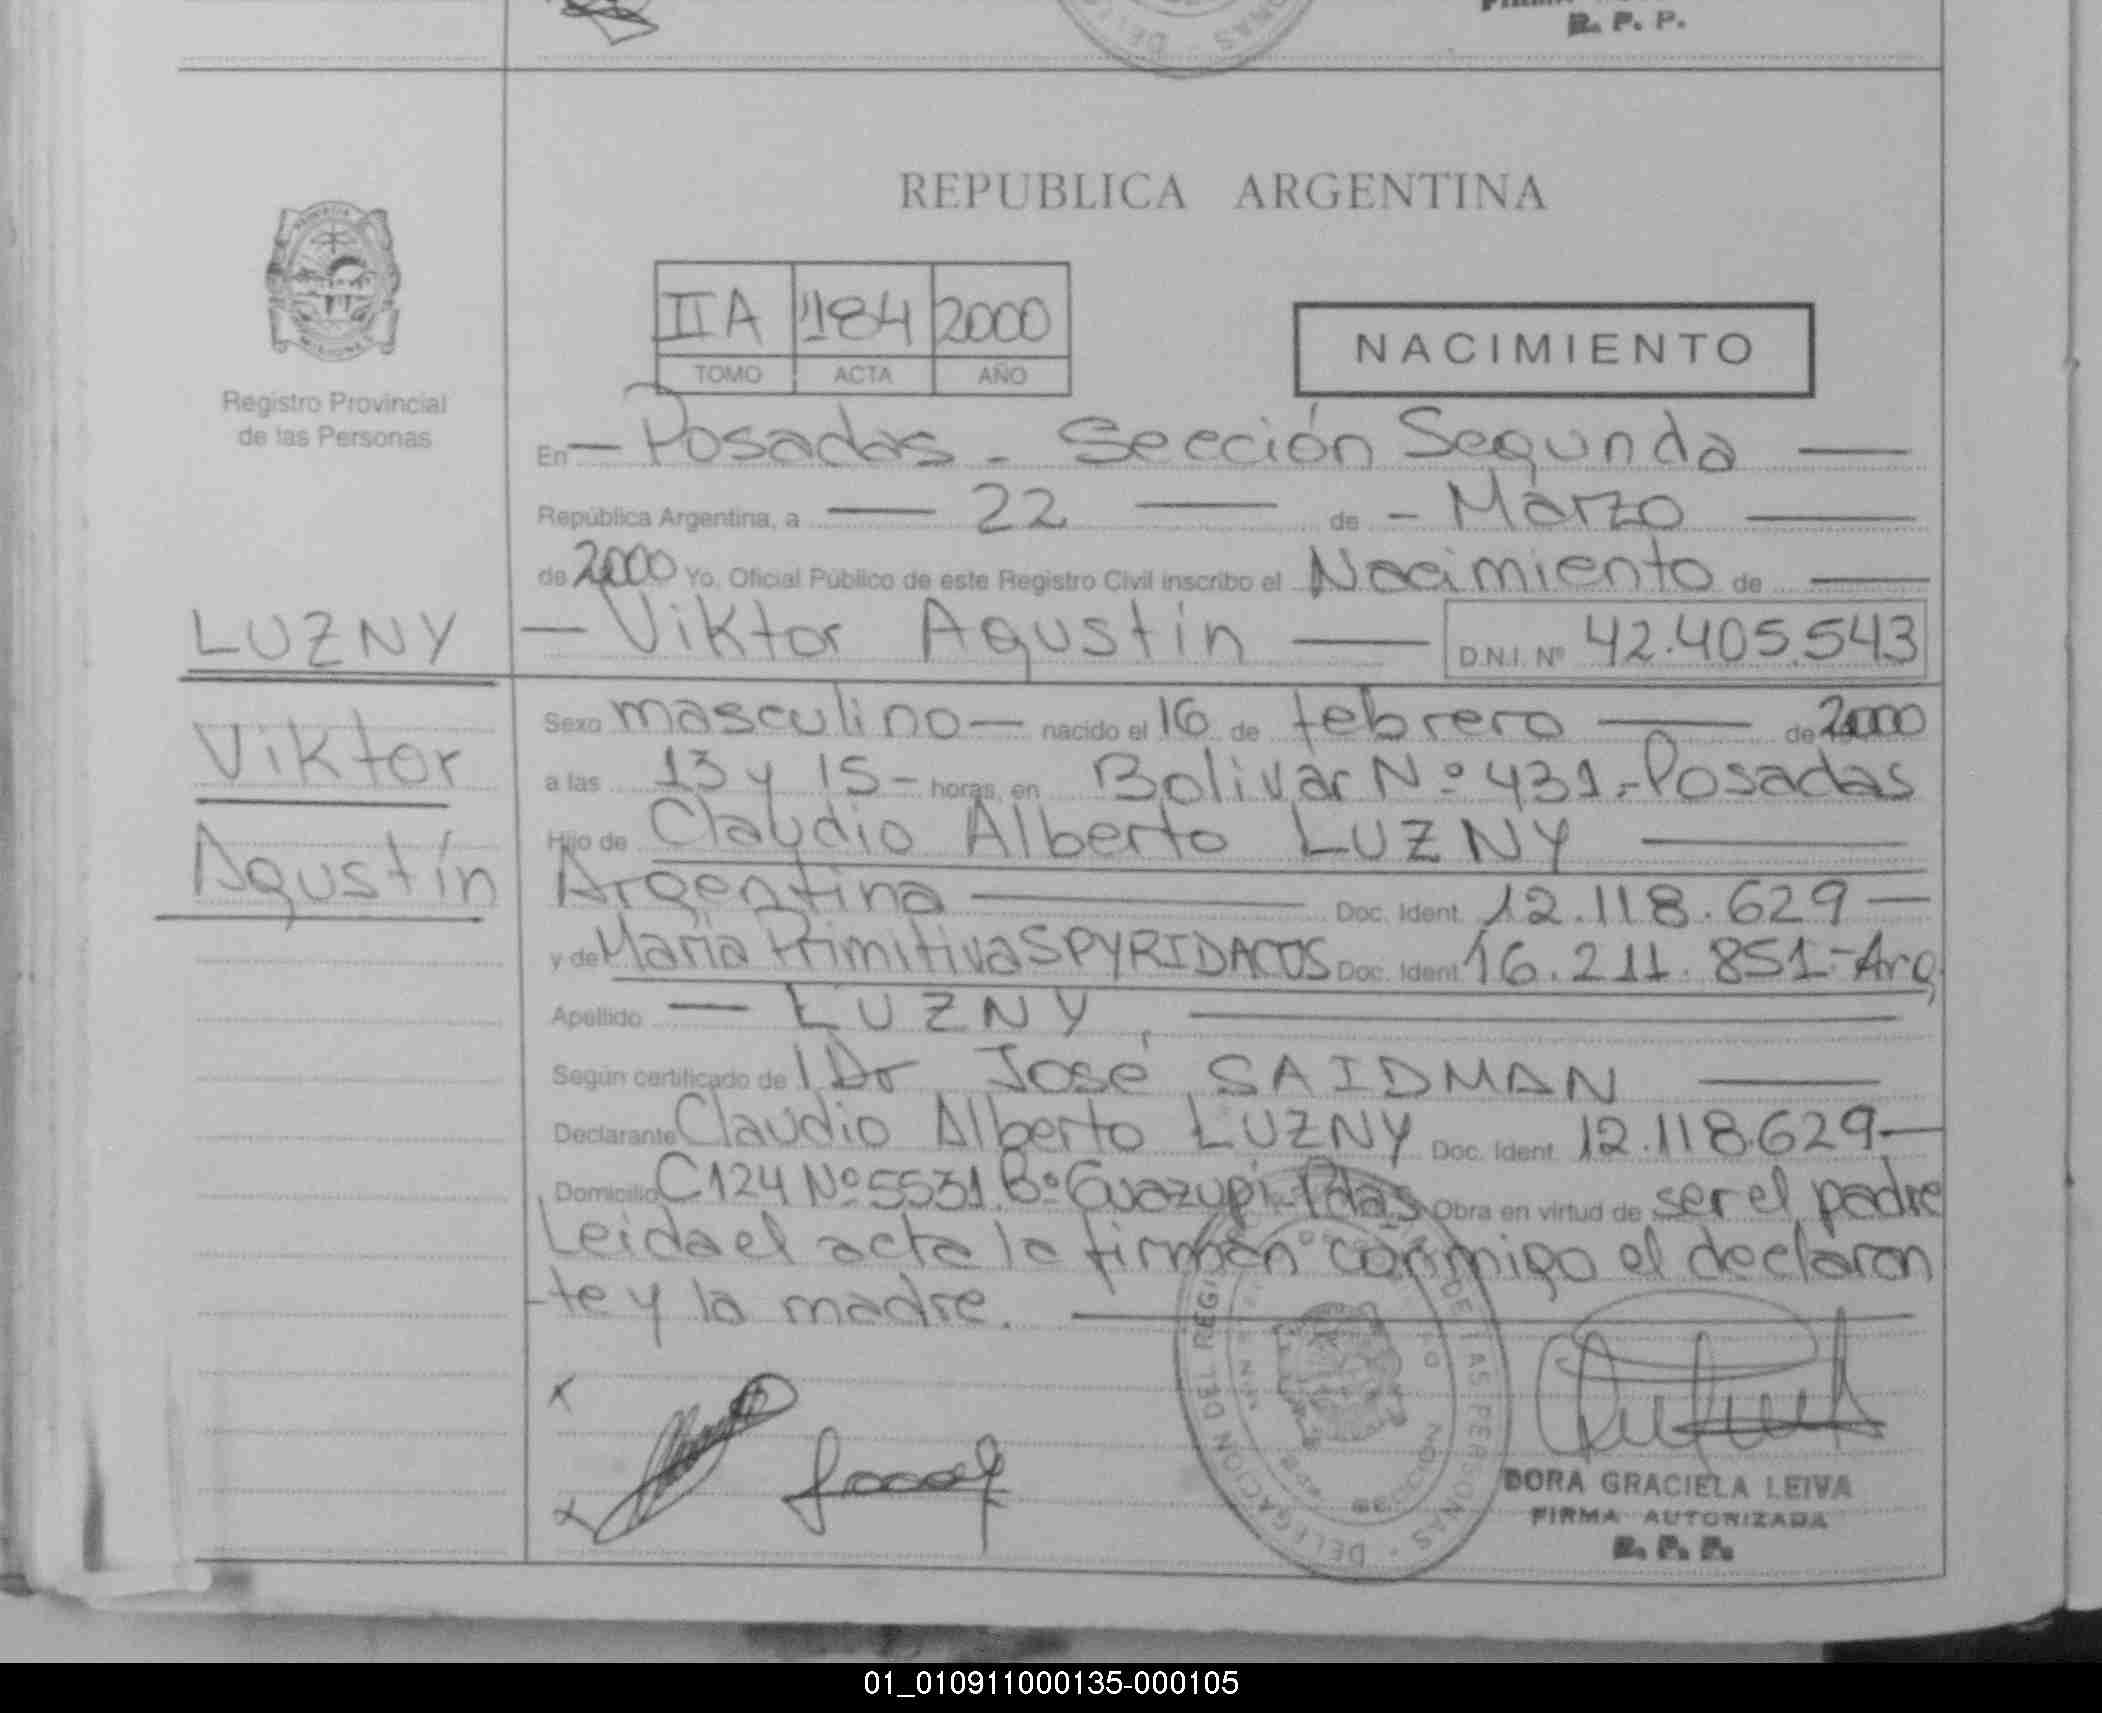 R. P. P.
REPUBLICA ARGENTINA
IIA 184 2000
TOMO ACTA AÑO
NACIMIENTO
Registro Provincial
de las Personas
En — Posadas - Sección Segunda —
República Argentina, a — 22 — de - Marzo —
de 2000 Yo, Oficial Público de este Registro Civil inscribo el Nacimiento de —
LUZNY
— Viktor Agustín — D.N.I. Nº 42.405.543
Viktor
Agustín
Sexo masculino — nacido el 16 de febrero — de 2000
a las 13 y 15 - horas, en Bolivar Nº 431.- Posadas
Hijo de Claudio Alberto LUZNY —
Argentina — Doc. Ident. 12.118.629 —
y de María Primitiva SPYRIDACOS Doc. Ident. 16.211.851 - Arg
Apellido — LUZNY, —
Según certificado de Dr José SAIDMAN —
Declarante Claudio Alberto LUZNY Doc. Ident. 12.118.629 —
Domicilio C124 Nº 5531 Bº Guazupi - Pdas Obra en virtud de ser el padre
Leida el acta la firman conmigo el declaran
-te y la madre. —
DELEGACION DEL REGISTRO DE LAS PERSONAS
SECCION
DORA GRACIELA LEIVA
FIRMA AUTORIZADA
R. P. P.
01_010911000135-000105